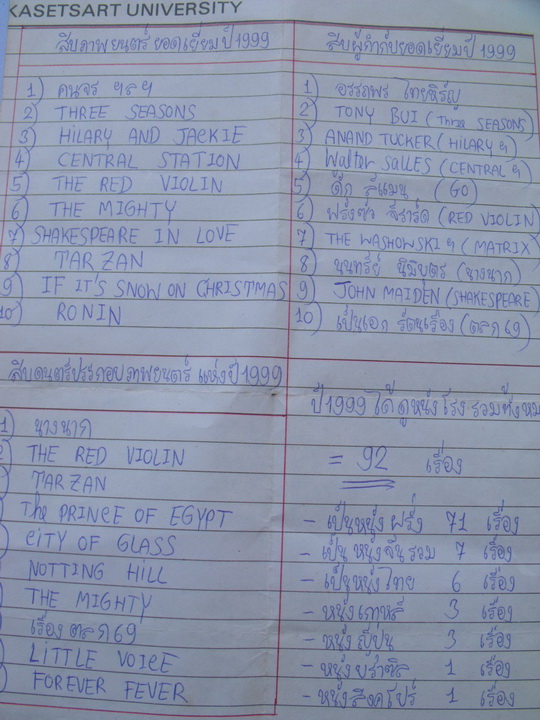 KASETSART UNIVERSITY
สิบภาพยนตร์ยอดเยี่ยมปี 1999
1) คนจร ฯลฯ
2) THREE SEASONS
3) HILARY AND JACKIE
4) CENTRAL STATION
5) THE RED VIOLIN
6) THE MIGHTY
7) SHAKESPEARE IN LOVE
8) TARZAN
9) IF IT'S SNOW ON CHRISTMAS
10) RONIN
สิบผู้กำกับยอดเยี่ยมปี 1999
1) อรรถพร ไทยหิรัญ
2) TONY BUI (Three SEASONS)
3) ANAND TUCKER (HILARY ฯ)
4) Walter Salles (CENTRAL ฯ)
5) ดั๊ก ลีแมน (GO)
6) ฟรังซัว จิราร์ด (RED VIOLIN)
7) THE WASHOWSKI ฯ (MATRIX)
8) นนทรีย์ นิมิบุตร (นางนาก)
9) JOHN MAIDEN (SHAKESPEARE)
10) เป็นเอก รัตนเรือง (ตลก 69)
สิบดนตรีประกอบภาพยนตร์ แห่งปี 1999
1) นางนาก
) THE RED VIOLIN
) TARZAN
) The PRINCE OF EGYPT
) CITY OF GLASS
) NOTTING HILL
) THE MIGHTY
) เรื่องตลก 69
) LITTLE VOICE
) FOREVER FEVER
ปี 1999 ได้ดูหนังโรง รวมทั้งหม
= 92 เรื่อง
- เป็นหนังฝรั่ง 71 เรื่อง
- เป็นหนังจีนรวม 7 เรื่อง
- เป็นหนังไทย 6 เรื่อง
- หนังเกาหลี 3 เรื่อง
- หนังญี่ปุ่น 3 เรื่อง
- หนังบราซิล 1 เรื่อง
- หนังสิงคโปร์ 1 เรื่อง